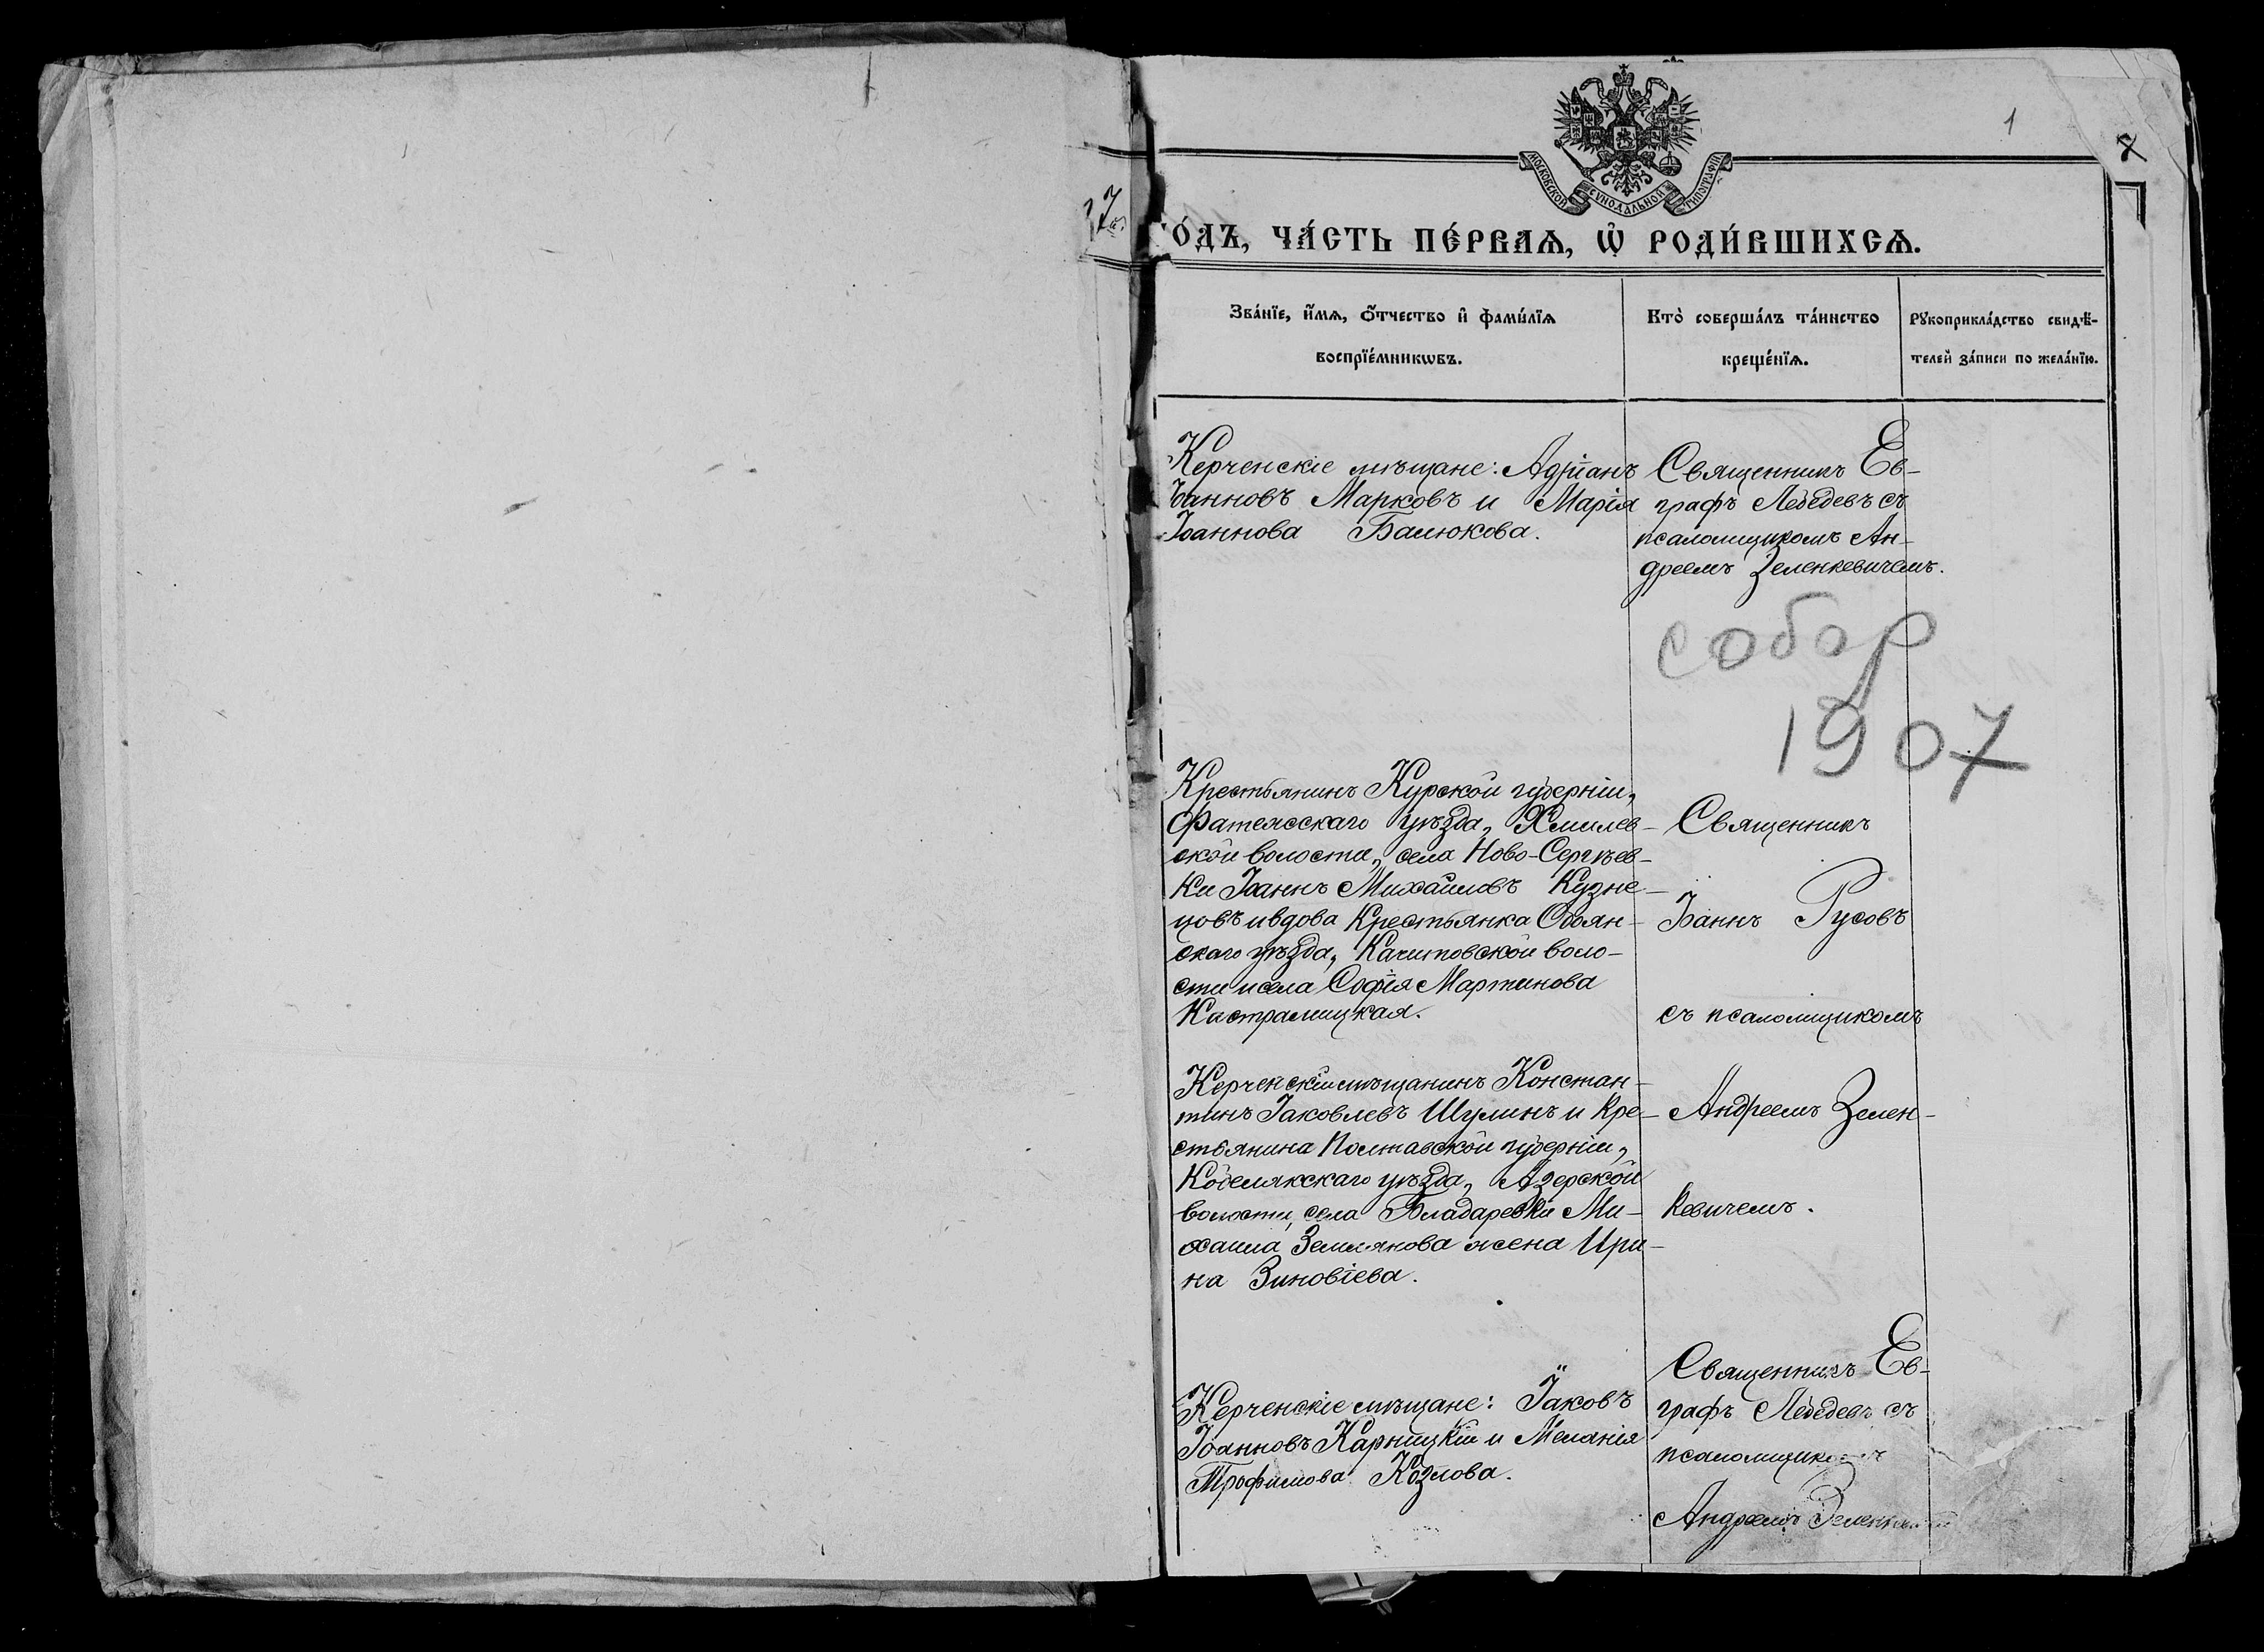 1
МОСКОВСКОЙ СУНОДАЛЬНОЙ ТИПОГРАФІИ
О́ДЪ, ЧА́СТЬ ПЕ́РВАѦ, Ѽ РОДИ́ВШИХСѦ.
Зва́нїе, и҆́мѧ, ѻ҆́тчество и҆ фами́лїѧ
воспрїе́мникѡвъ.
Кто̀ соверша́лъ та́инство
креще́нїѧ.
Рꙋкоприкла́дство свидѣ́-
телей за́писи по жела́нїю.
Керченскіе мѣщане: Адріанъ
Іоанновъ Марковъ и Марія
Іоаннова Балюкова.
Священникъ Ев-
графъ Лебедевъ съ
псаломщикомъ Ан-
дреемъ Зеленкевичемъ.
собор
1907
Крестьянинъ Курской губерніи,
Фатежсскаго уѣзда, Хмилев-
ской волости, села Ново-Сергѣев-
ки Іоаннъ Михайловъ Кузне-
цовъ и вдова крестьянка Обоян-
скаго уѣзда, Качетовской воло-
сти и села Софія Мартинова
Кастрамицкая.
Священникъ
Іоаннъ Русовъ
съ псаломщикомъ
Керченскій мѣщанинъ Констан-
тинъ Іаковлевъ Шулинъ и кре-
стьянина Полтавской губерніи,
Кобелякскаго уѣзда, Азерской
волости, села Бладаревки Ми-
хаила Землянова жена Ири-
на Зиновіева.
Андреемъ Зелен-
кевичемъ.
Керченскіе мѣщане: Іаковъ
Іоанновъ Карницкій и Меланія
Трофимова Козлова.
Священникъ Ев-
графъ Лебедевъ съ
псаломщикомъ
Андреемъ